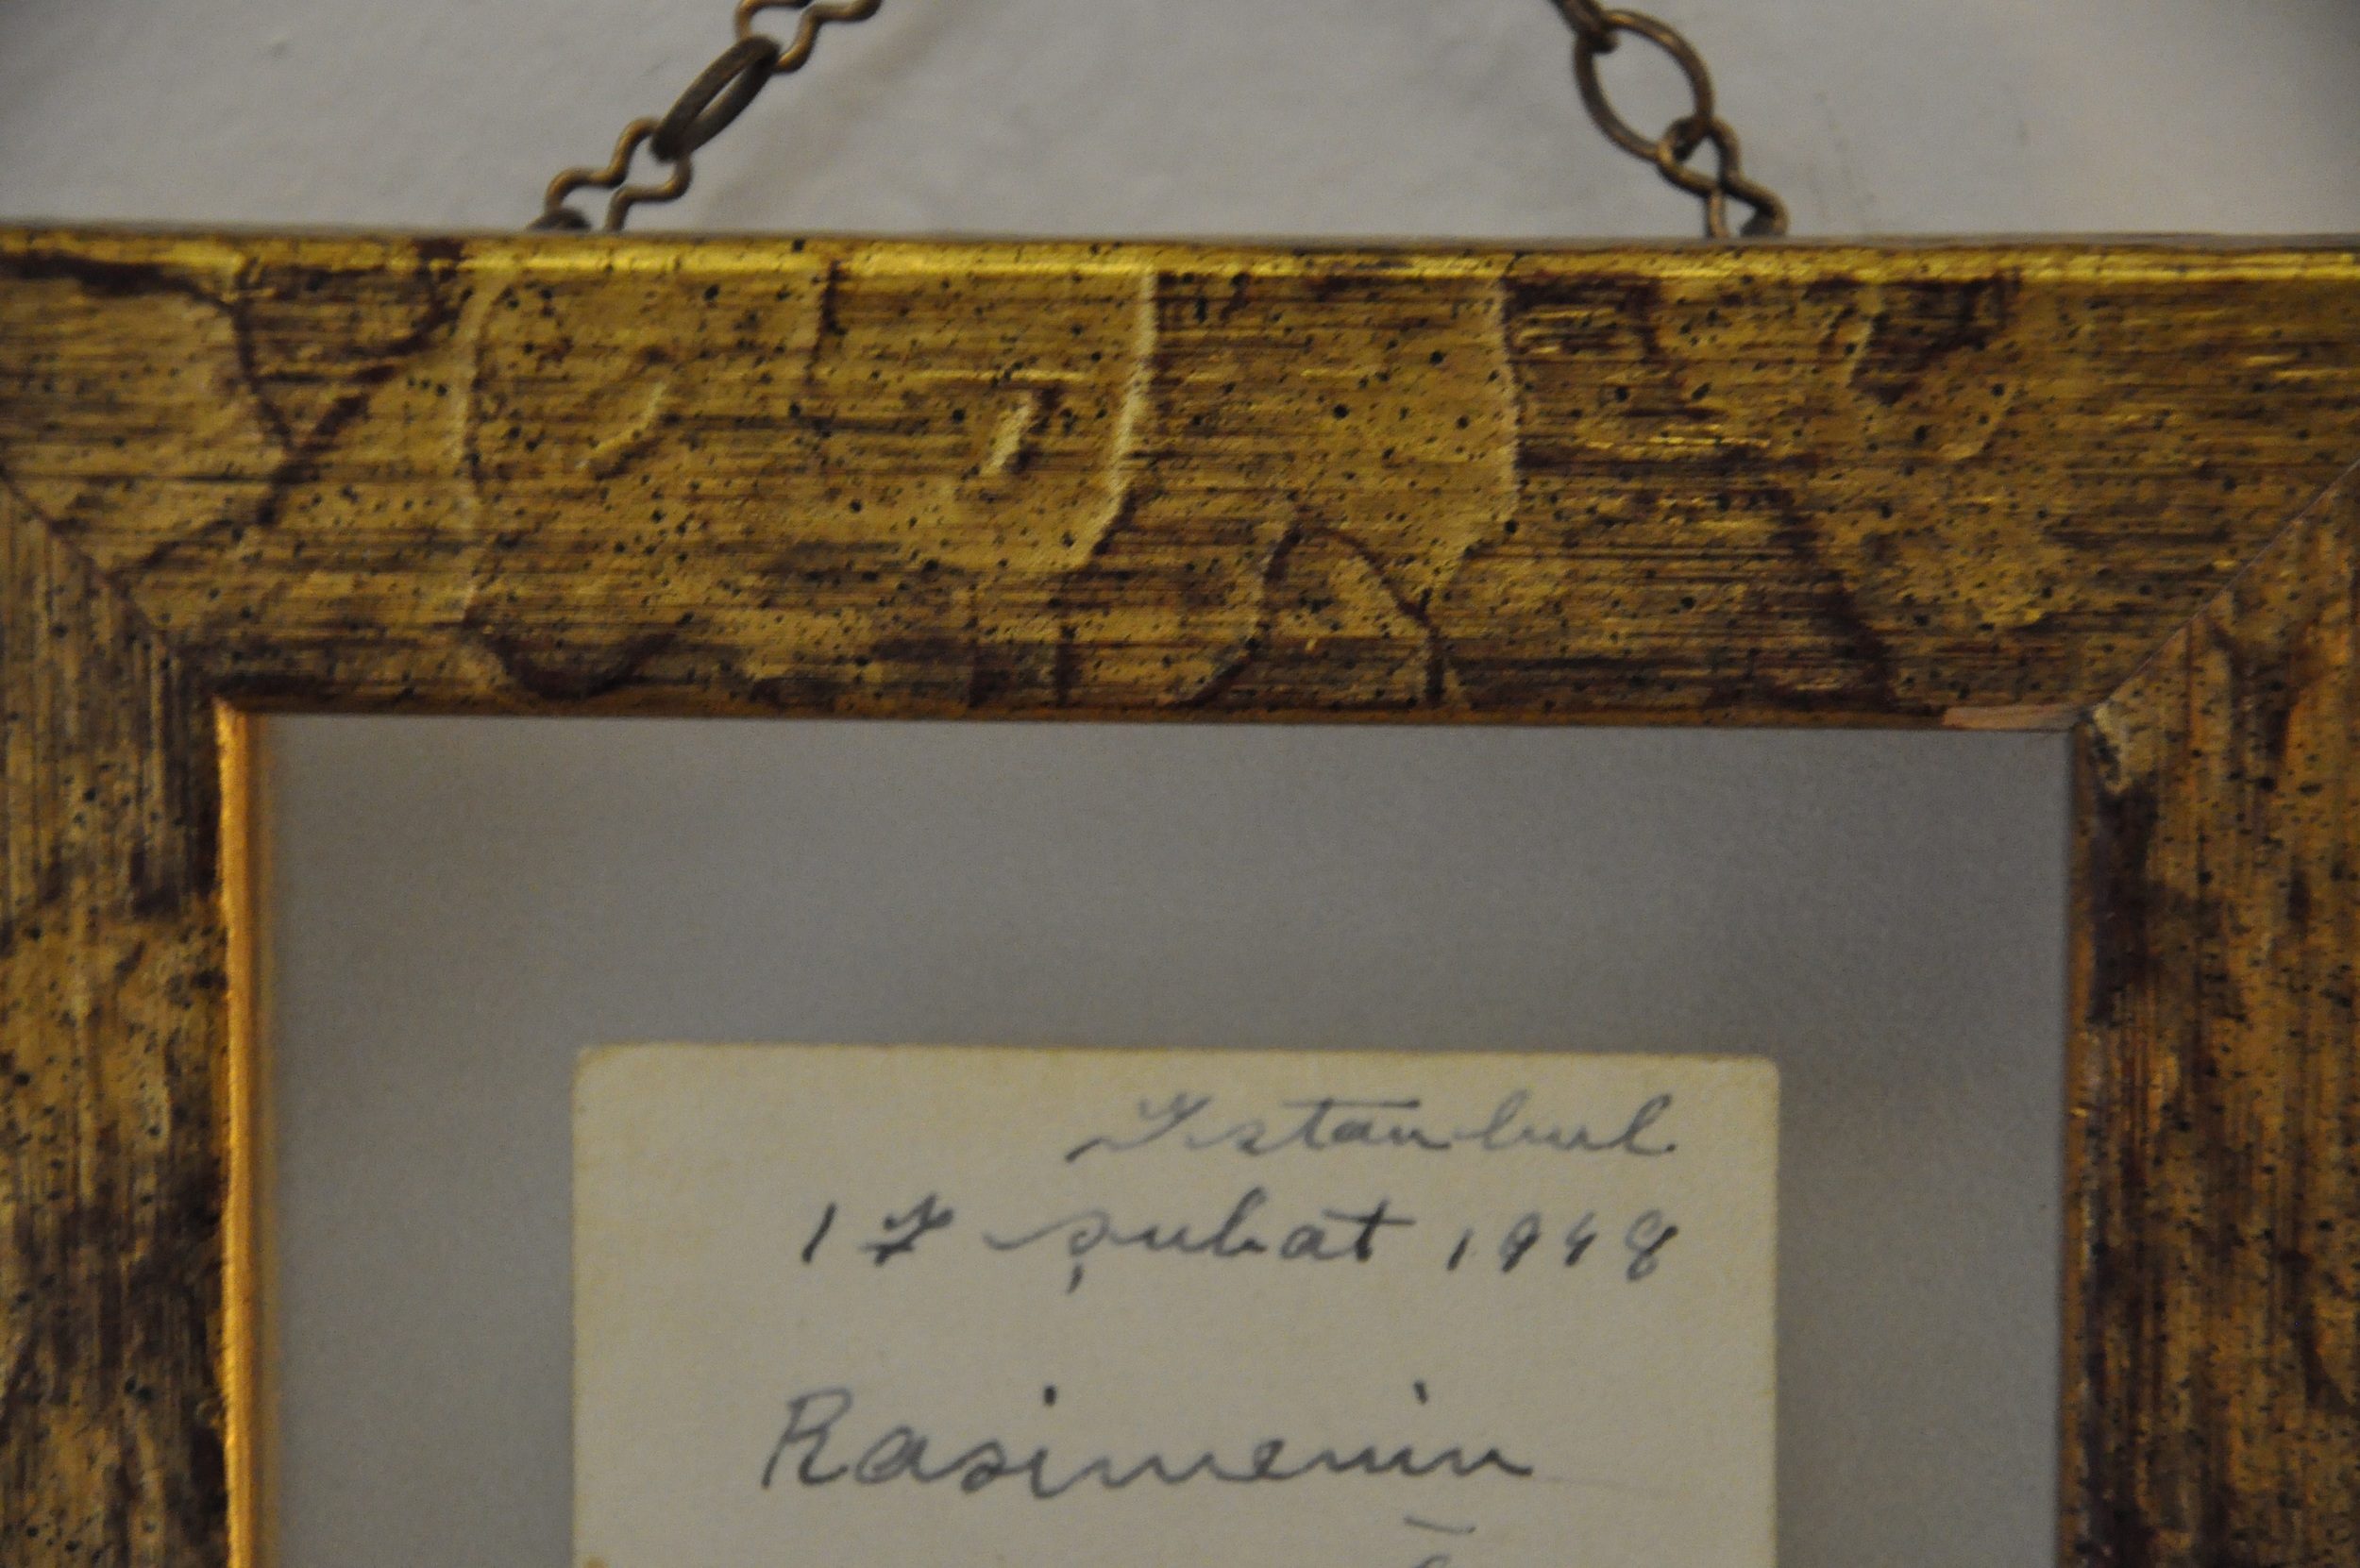 Istanbul
17 şubat 1948
Rasimenin